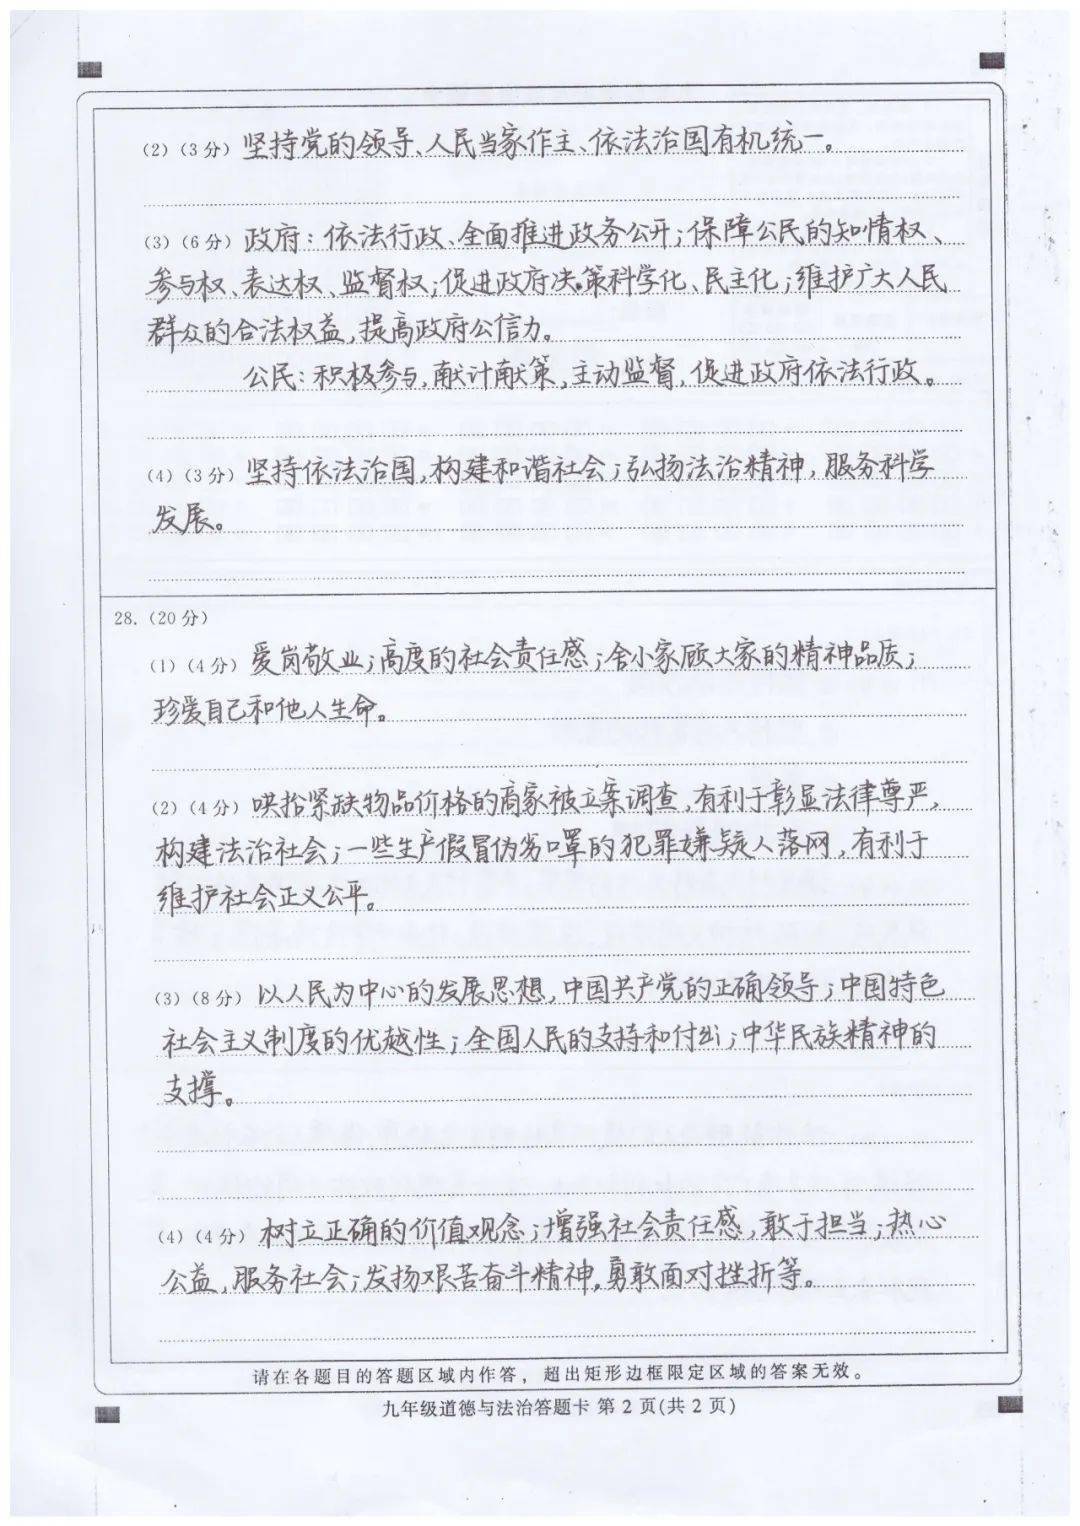 (2)(3分)坚持党的领导、人民当家作主、依法治国有机统一。
(3)(6分)政府：依法行政、全面推进政务公开;保障公民的知情权、
参与权、表达权、监督权;促进政府决策科学化、民主化;维护广大人民
群众的合法权益,提高政府公信力。
公民：积极参与,献计献策,主动监督,促进政府依法行政。
(4)(3分)坚持依法治国,构建和谐社会;弘扬法治精神,服务科学
发展。
28.(20分)
(1)(4分)爱岗敬业;高度的社会责任感;舍小家顾大家的精神品质;
珍爱自己和他人生命。
(2)(4分)哄抬紧缺物品价格的商家被立案调查,有利于彰显法律尊严,
构建法治社会;一些生产假冒伪劣口罩的犯罪嫌疑人落网,有利于
维护社会正义公平。
(3)(8分)以人民为中心的发展思想,中国共产党的正确领导;中国特色
社会主义制度的优越性;全国人民的支持和付出;中华民族精神的
支撑。
(4)(4分)树立正确的价值观念;增强社会责任感,敢于担当;热心
公益,服务社会;发扬艰苦奋斗精神,勇敢面对挫折等。
请在各题目的答题区域内作答，超出矩形边框限定区域的答案无效。
九年级道德与法治答题卡 第2页(共2页)